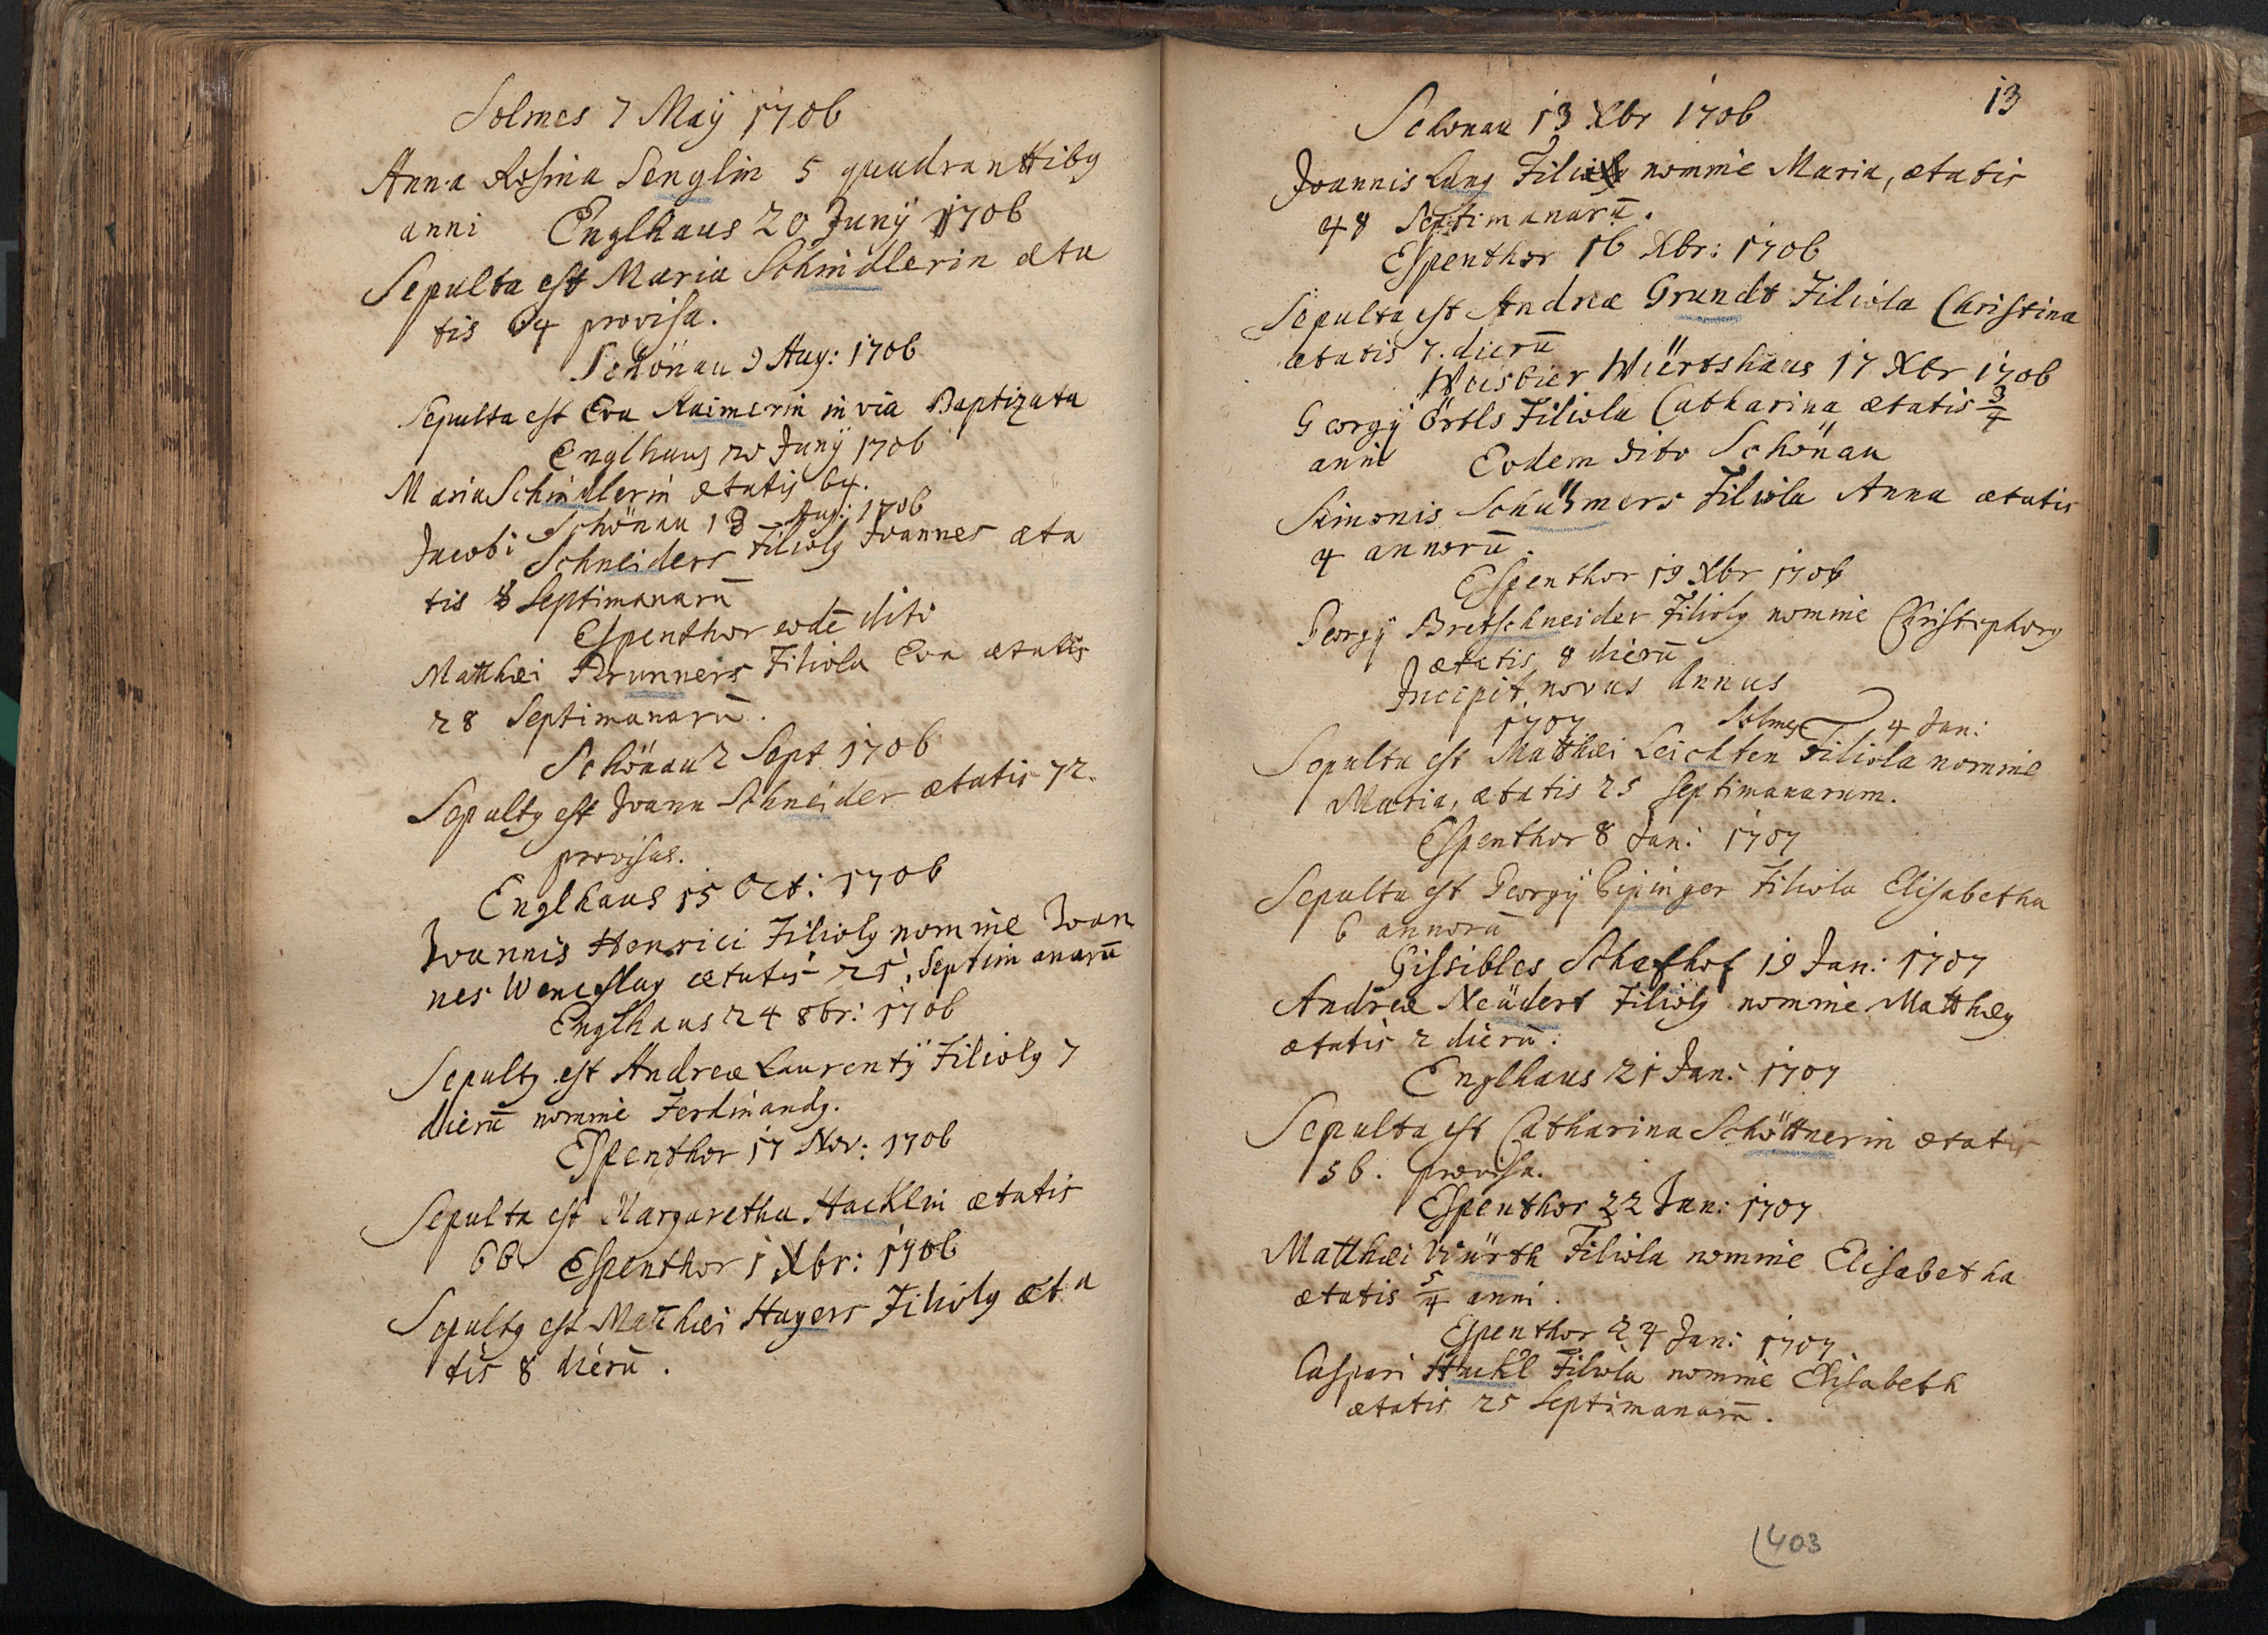 Solmes 7 Maÿ 1706
Anna Rosina Senglin 5 quadranttibq
anni Englhaus 20 Junÿ 1706
Sepulta est Maria Schindlerin æta
tis 64 provisa.
Schönau 9 Aug: 1706
Sepulta est Eva Raimerin in via Baptizata
Englhaus 20 Junÿ 1706
Maria Schindlerin ætatis 64.
Schönau 13 Aug: 1706
Jacobi Schneiders Filiolq Joannes æta
tis 8 Septimanarū
Espenthor eodē dito
Matthæi Prunners Filiola Eva ætatis
28 Septimanarū.
Schönau 2 Sept 1706
Sepultq est Joann Schneider ætatis 72.
provisus.
Englhaus 15 Oct: 1706
Joannis Henrici Filiolq nomine Joan
nes Wenceslaq ætatis 25 Septimanarū
Englhaus 24 8br: 1706
Sepultq est Andreæ Laurentÿ Filiolq 7
dierū nomine Ferdinandq.
Espenthor 17 Nov: 1706
Sepulta est Margaretha Hacklin ætatis
66 Espenthor 1 Xbr: 1706
Sepultq est Matthæi Hayers Filiolq æta
tis 8 dierū.
13
Schonau 13 Xbr 1706
Joannis Lang nomine Maria, ætatis
48 Septimanarū.
Espenthor 16 Xbr: 1706
Sepulta est Andreæ Grundt Filiola Christina
ætatis 7. dierū
Weisbier Würtshaus 17 Xbr 1706
Georgÿ Örtls Filiola Catharina ætatis 3/4
anni Eodem dito Schönau
Simonis Filiola Anna ætatis
4 annorū.
Espenthor 19 Xbr 1706
Georgÿ Bretschneider Filiolq nomine Christophorq
ætatis 8 dierū
Incipit novus Annus
1707 Solmes 4 Jan:
Sepulta est Matthæi Leichten Filiola nomine
Maria, ætatis 25 septimanarum.
Espenthor 8 Jan: 1707
Sepulta est Georgÿ Filiola Elisabetha
6 annorū
Gissibles Schafhof 19 Jan: 1707
Andreæ Neüdert Filiolq nomine Matthæq
ætatis 2 dierū.
Englhaus 21 Jan: 1707
Sepulta est Catharina Schöttnerin ætatis
56. provisa.
Espenthor 22 Jan: 1707
Matthæi Würth Filiola nomine Elisabetha
ætatis 5/4 anni.
Espenthor 24 Jan: 1707
Caspari Hackl Filiola nomine Elisabeth
ætatis 25 Septimanarū.
403